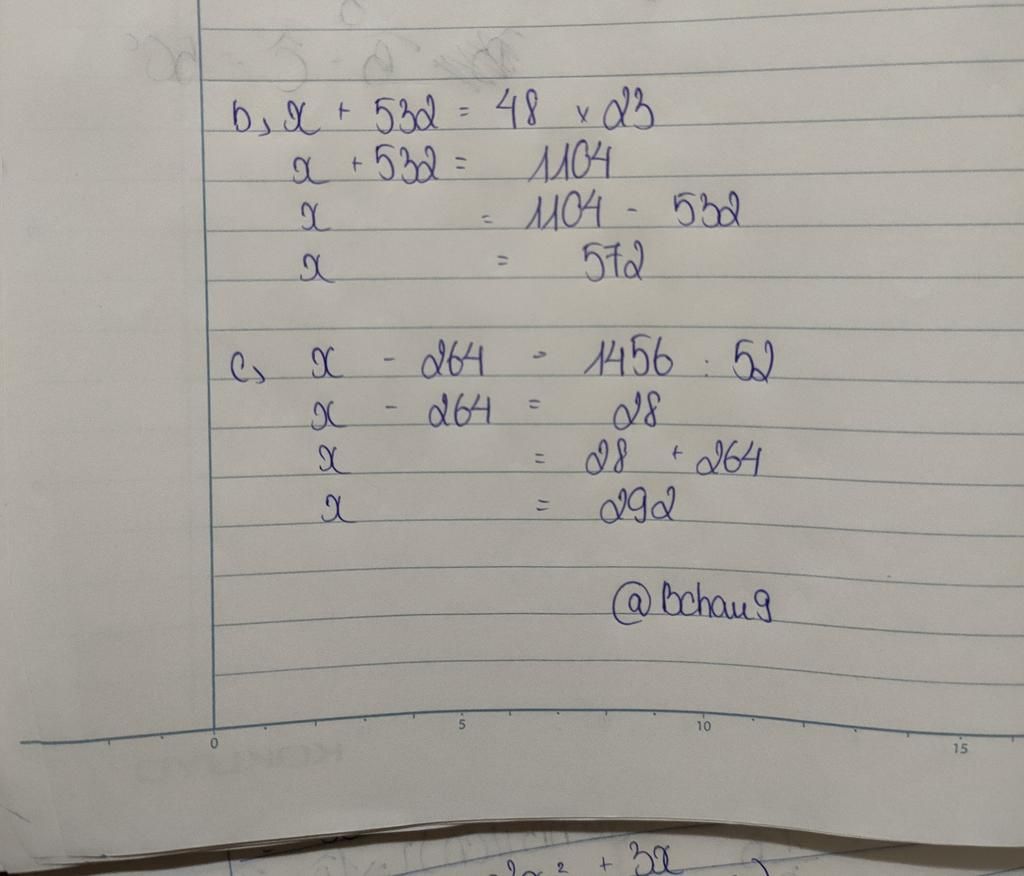 b, x + 532 = 48 x 23
x + 532 = 1104
x = 1104 - 532
x = 572
c, x - 264 = 1456 : 52
x - 264 = 28
x = 28 + 264
x = 292
@Bchau9
0 5 10 15
+ 3x